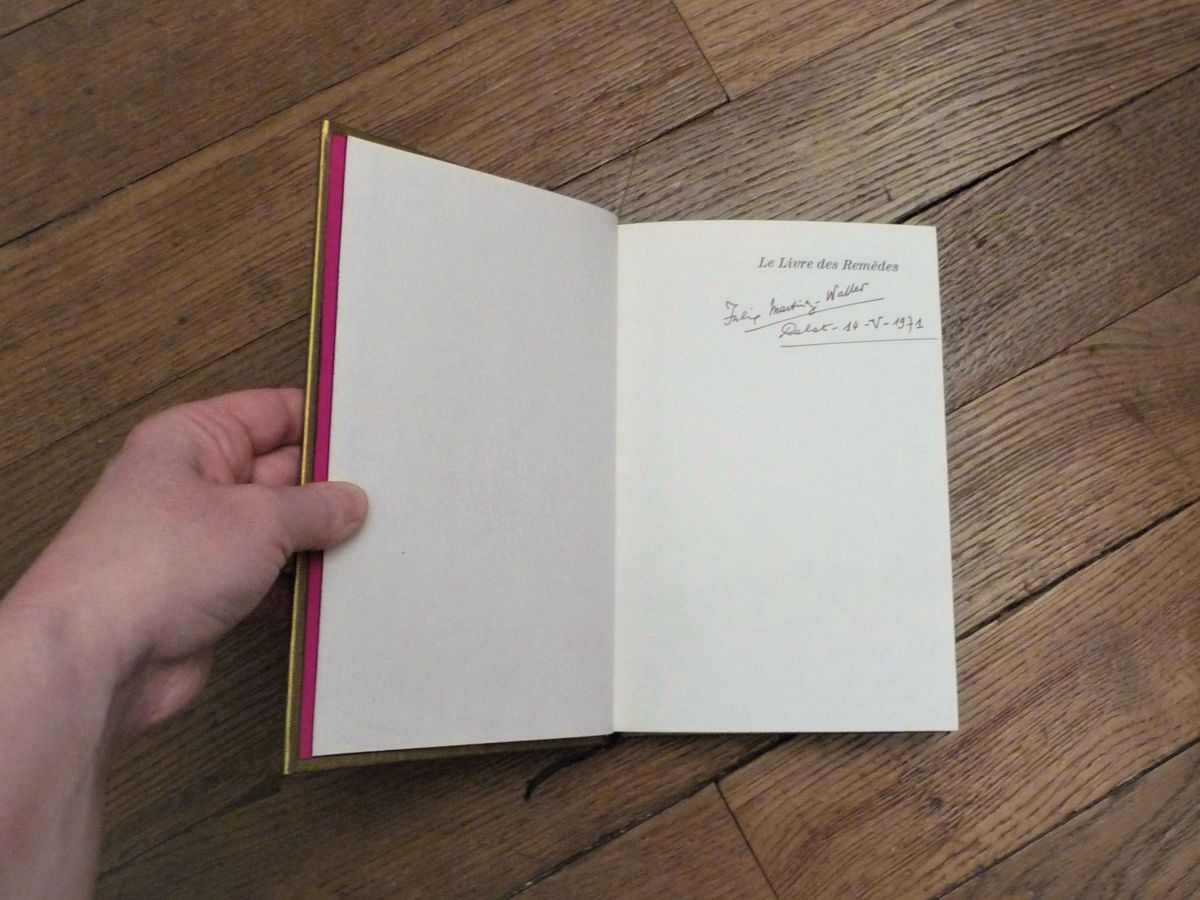 Le Livre des Remèdes
Felix Martinez-Waller
Rabat - 14 - V - 1971